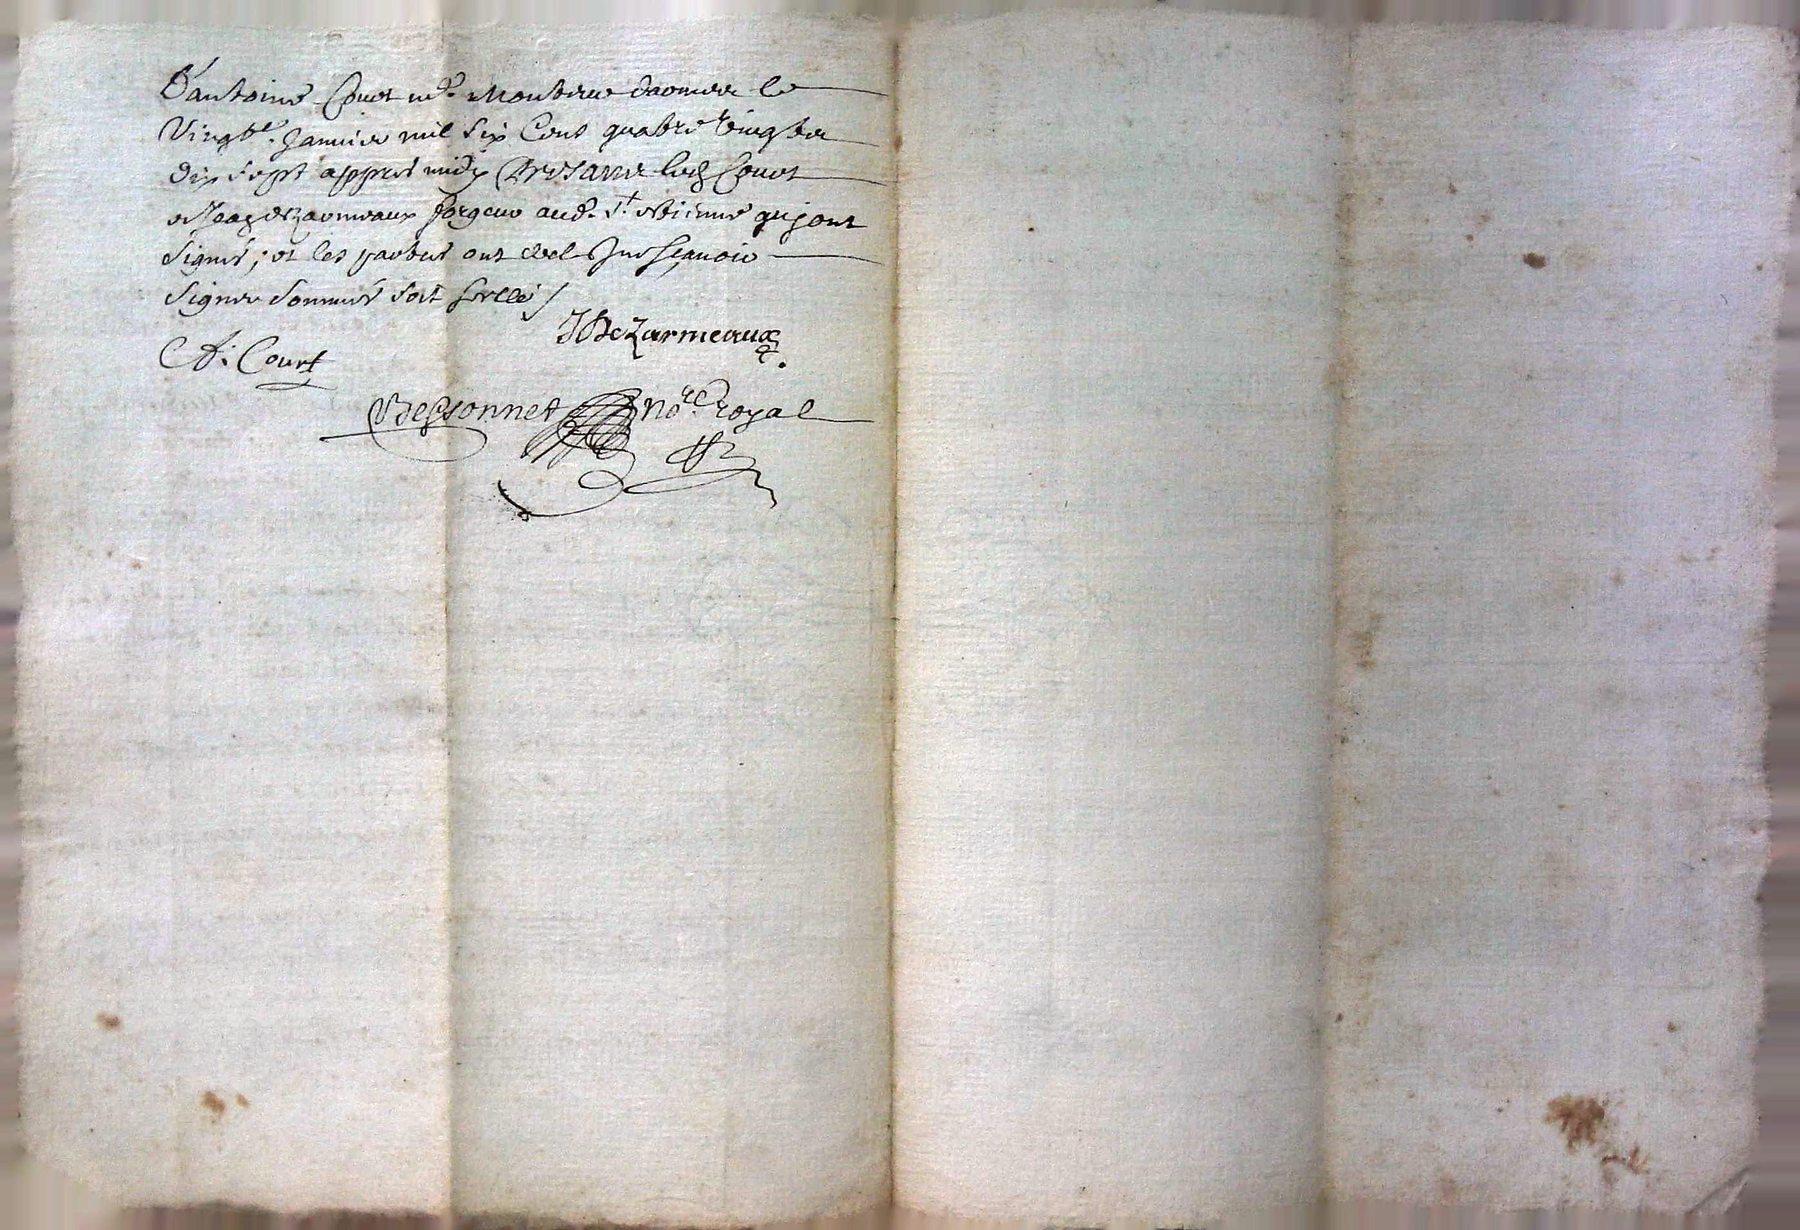 D'antoine Court md. Monteur darmes le
Vingt e. Janvier mil six Cens quatre vingtz
dix sept appres midy Presans led Court
et Jean dezarmeaux forgeur aud. St. Etienne qui ont
signés, et les parties ont decl ne sçavoir
signer sommés soit scellé /
JDeZarmeaux
A. Court
Bessonnet no.re royal